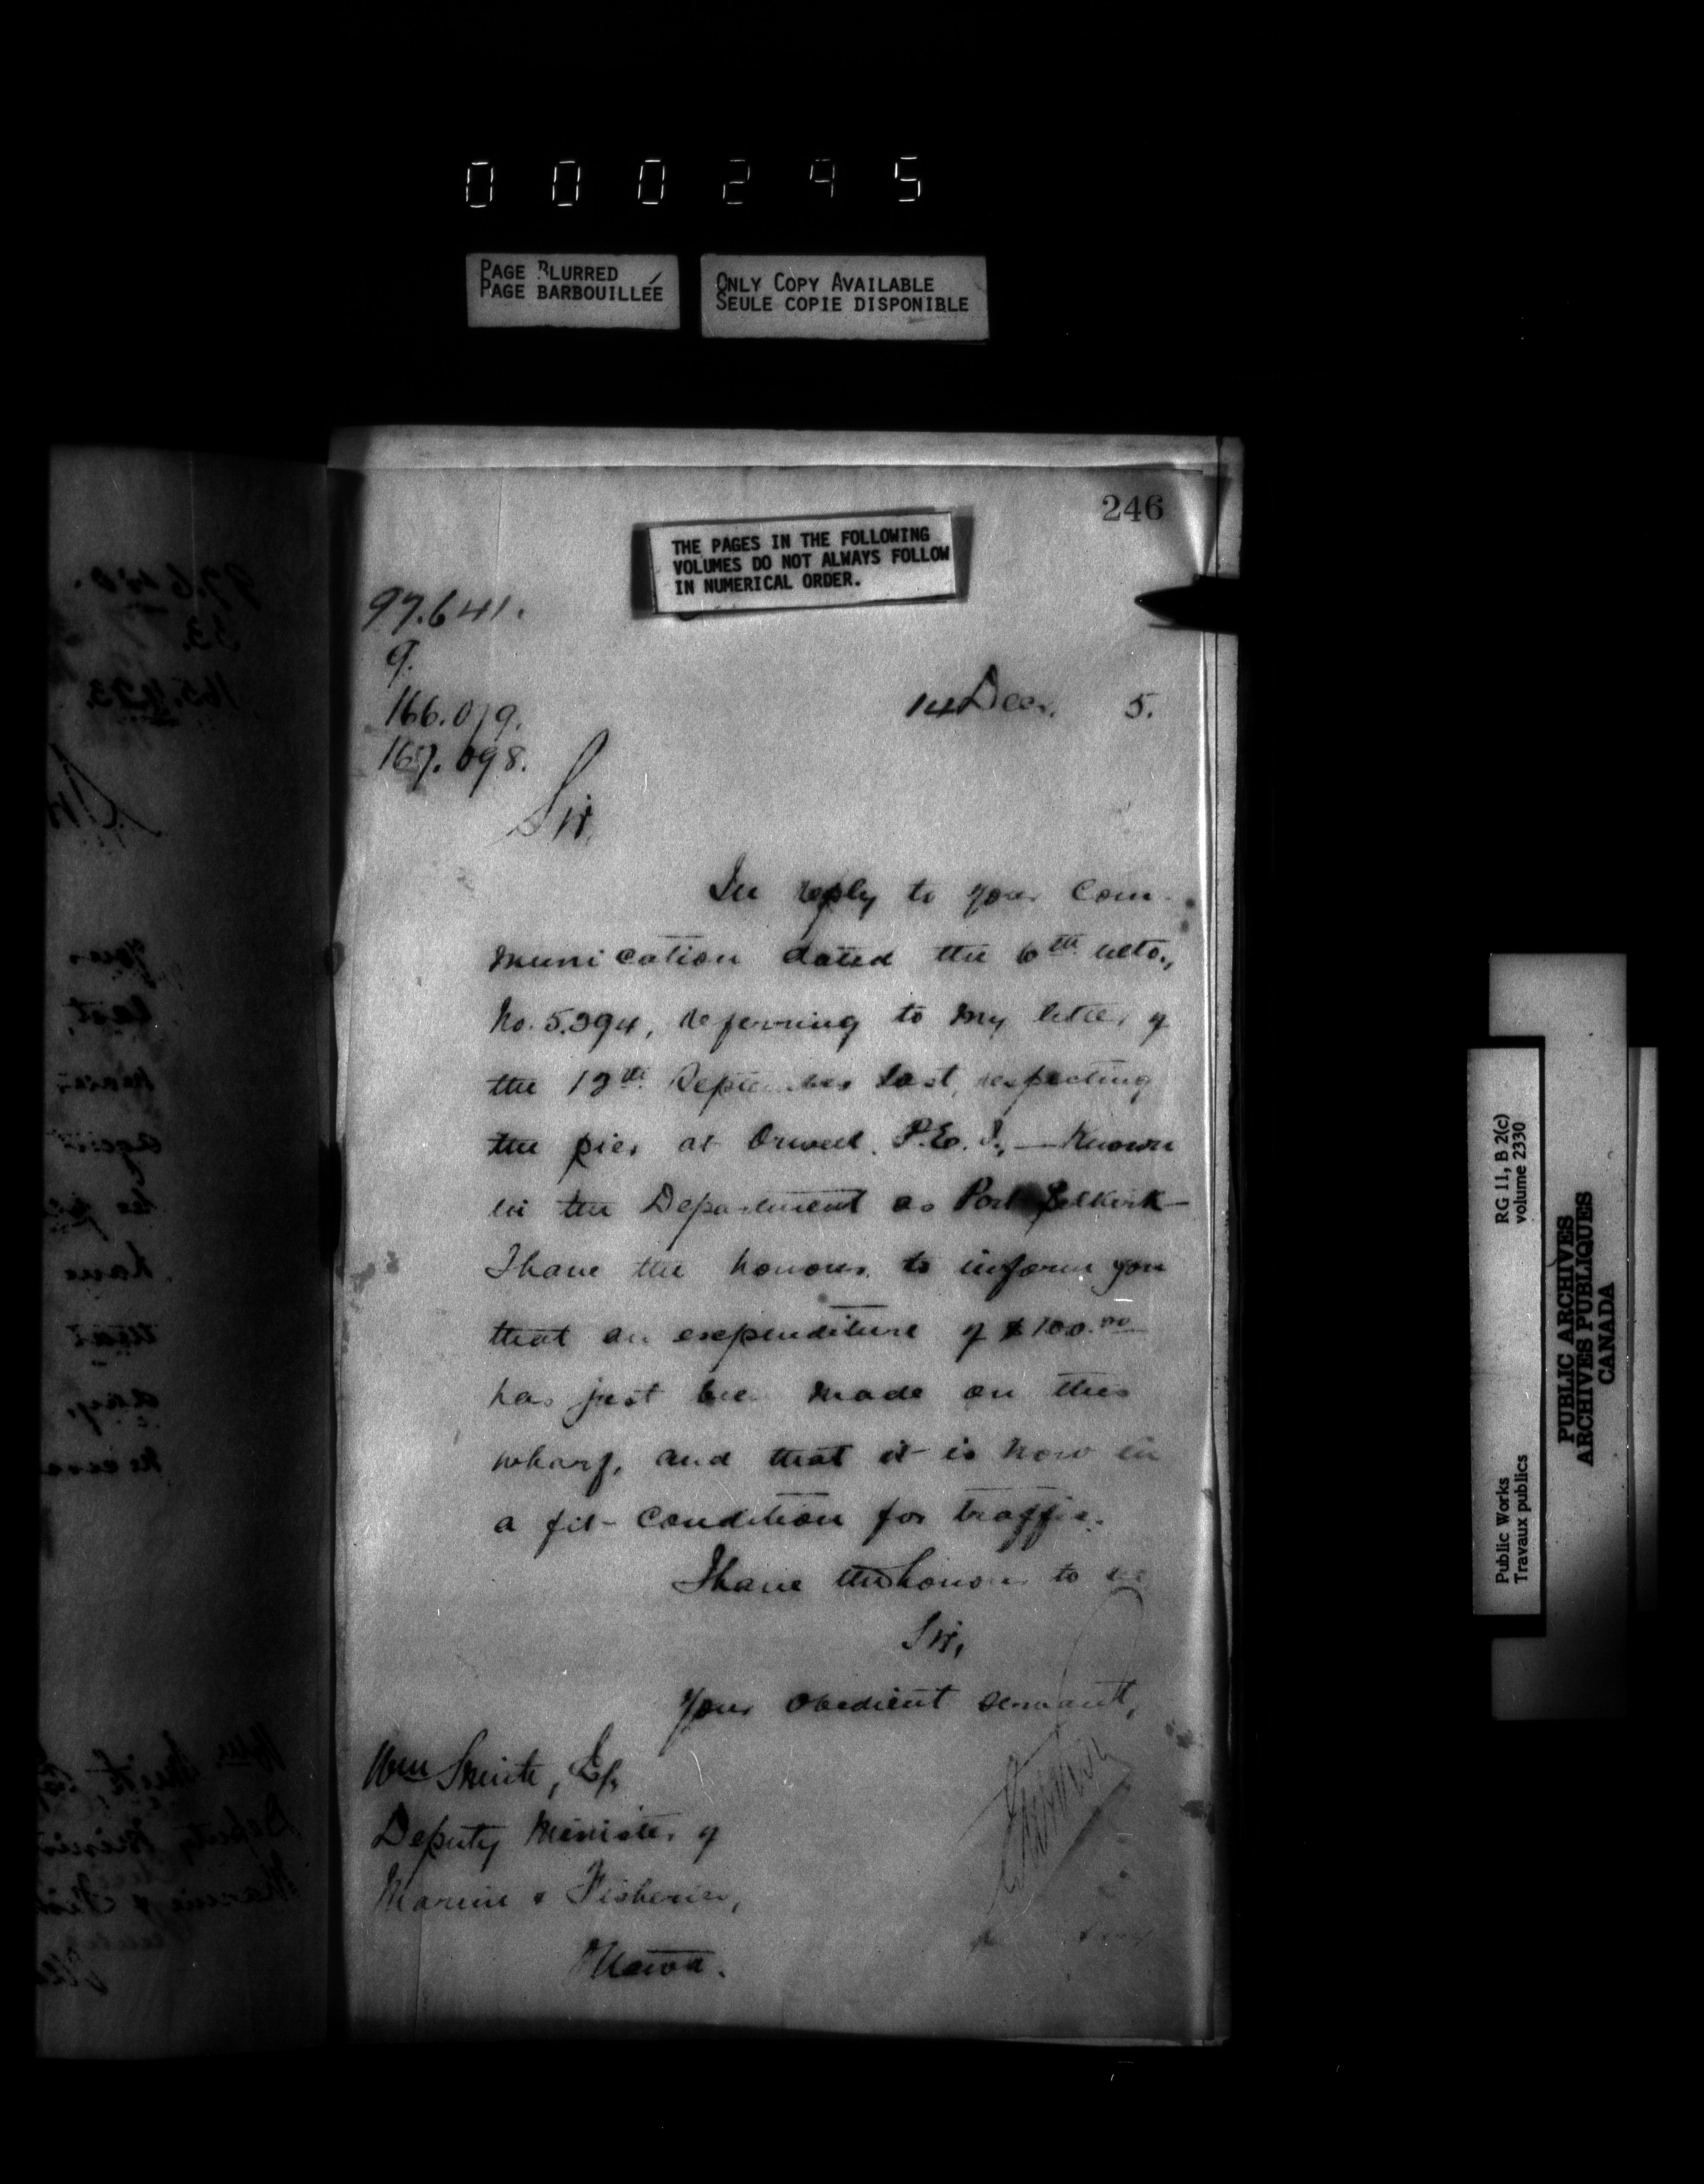 000295
PAGE BLURRED
PAGE BARBOUILLÉE
ONLY COPY AVAILABLE
SEULE COPIE DISPONIBLE
246
THE PAGES IN THE FOLLOWING
VOLUMES DO NOT ALWAYS FOLLOW
IN NUMERICAL ORDER.
97.641.
9.
166.079.
167.098.
14 Decr. 5.
Sir,
In reply to your Com-
munication dated the 6th ulto.,
No. 5.394, referring to my letter of
the 12th September last, respecting
the pier at Orwell, P.E.I., — Known
in the Department as Port Selkirk —
I have the honour to inform you
that an expenditure of $100.00
has just been made on this
wharf, and that it is now in
a fit condition for traffic.
I have the honour to be
Sir,
Your obedient servant,
Wm Smith, Esq.
Deputy Minister of
Marine & Fisheries,
Ottawa.
RG 11, B 2(c)
volume 2330
Public Works
Travaux publics
PUBLIC ARCHIVES
ARCHIVES PUBLIQUES
CANADA